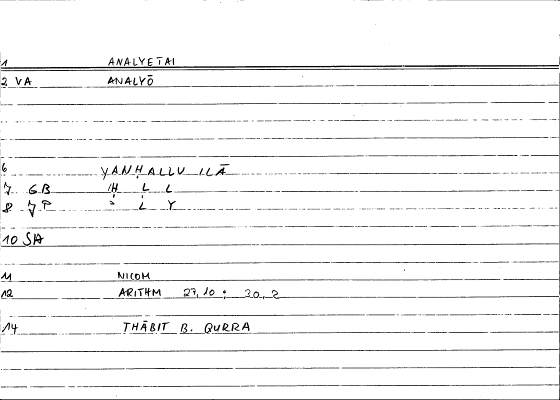 1 ANALYETAI
2 VA ANALYŌ
6 YANḤALLU ILĀ
7 GB Ḥ L L
8 JP ʾ L Y
10 SA
11 NICOM
12 ARITHM 27,10 : 30,2
14 THĀBIT B. QURRA